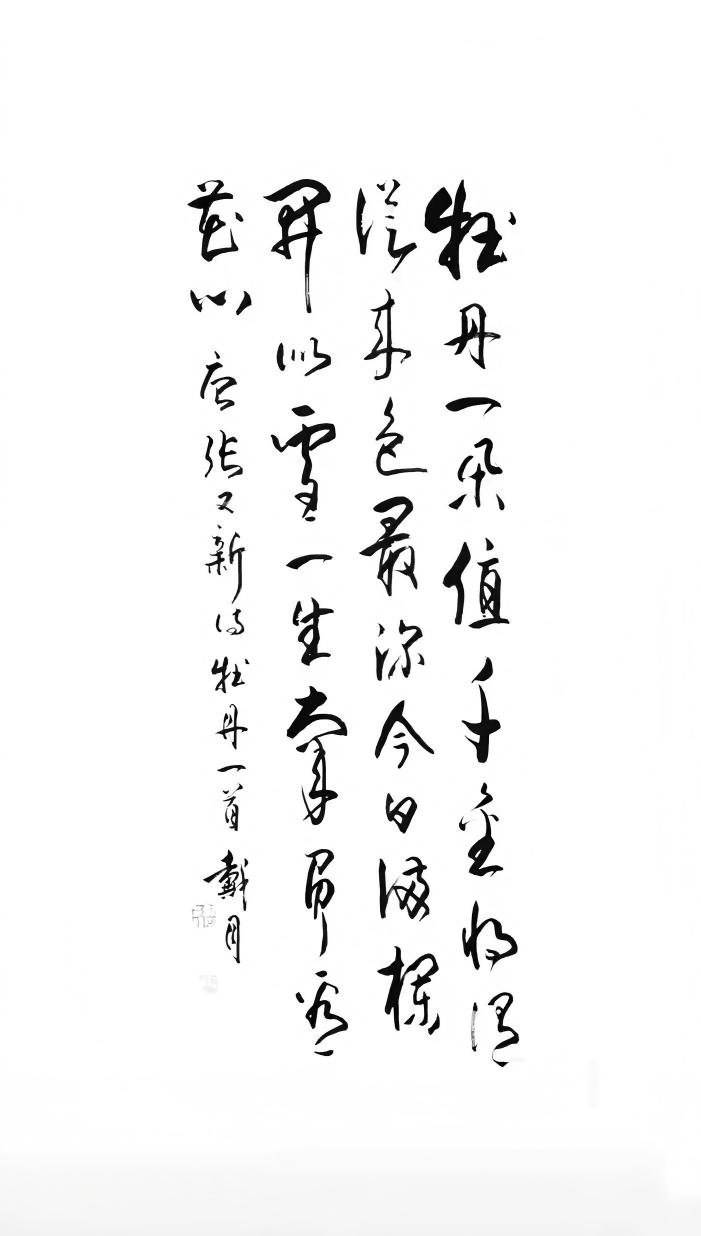 牡丹一朵值千金将谓
從来色最深今日满欄
開似雪一生辜負看
花心 唐张又新诗牡丹一首 戴月